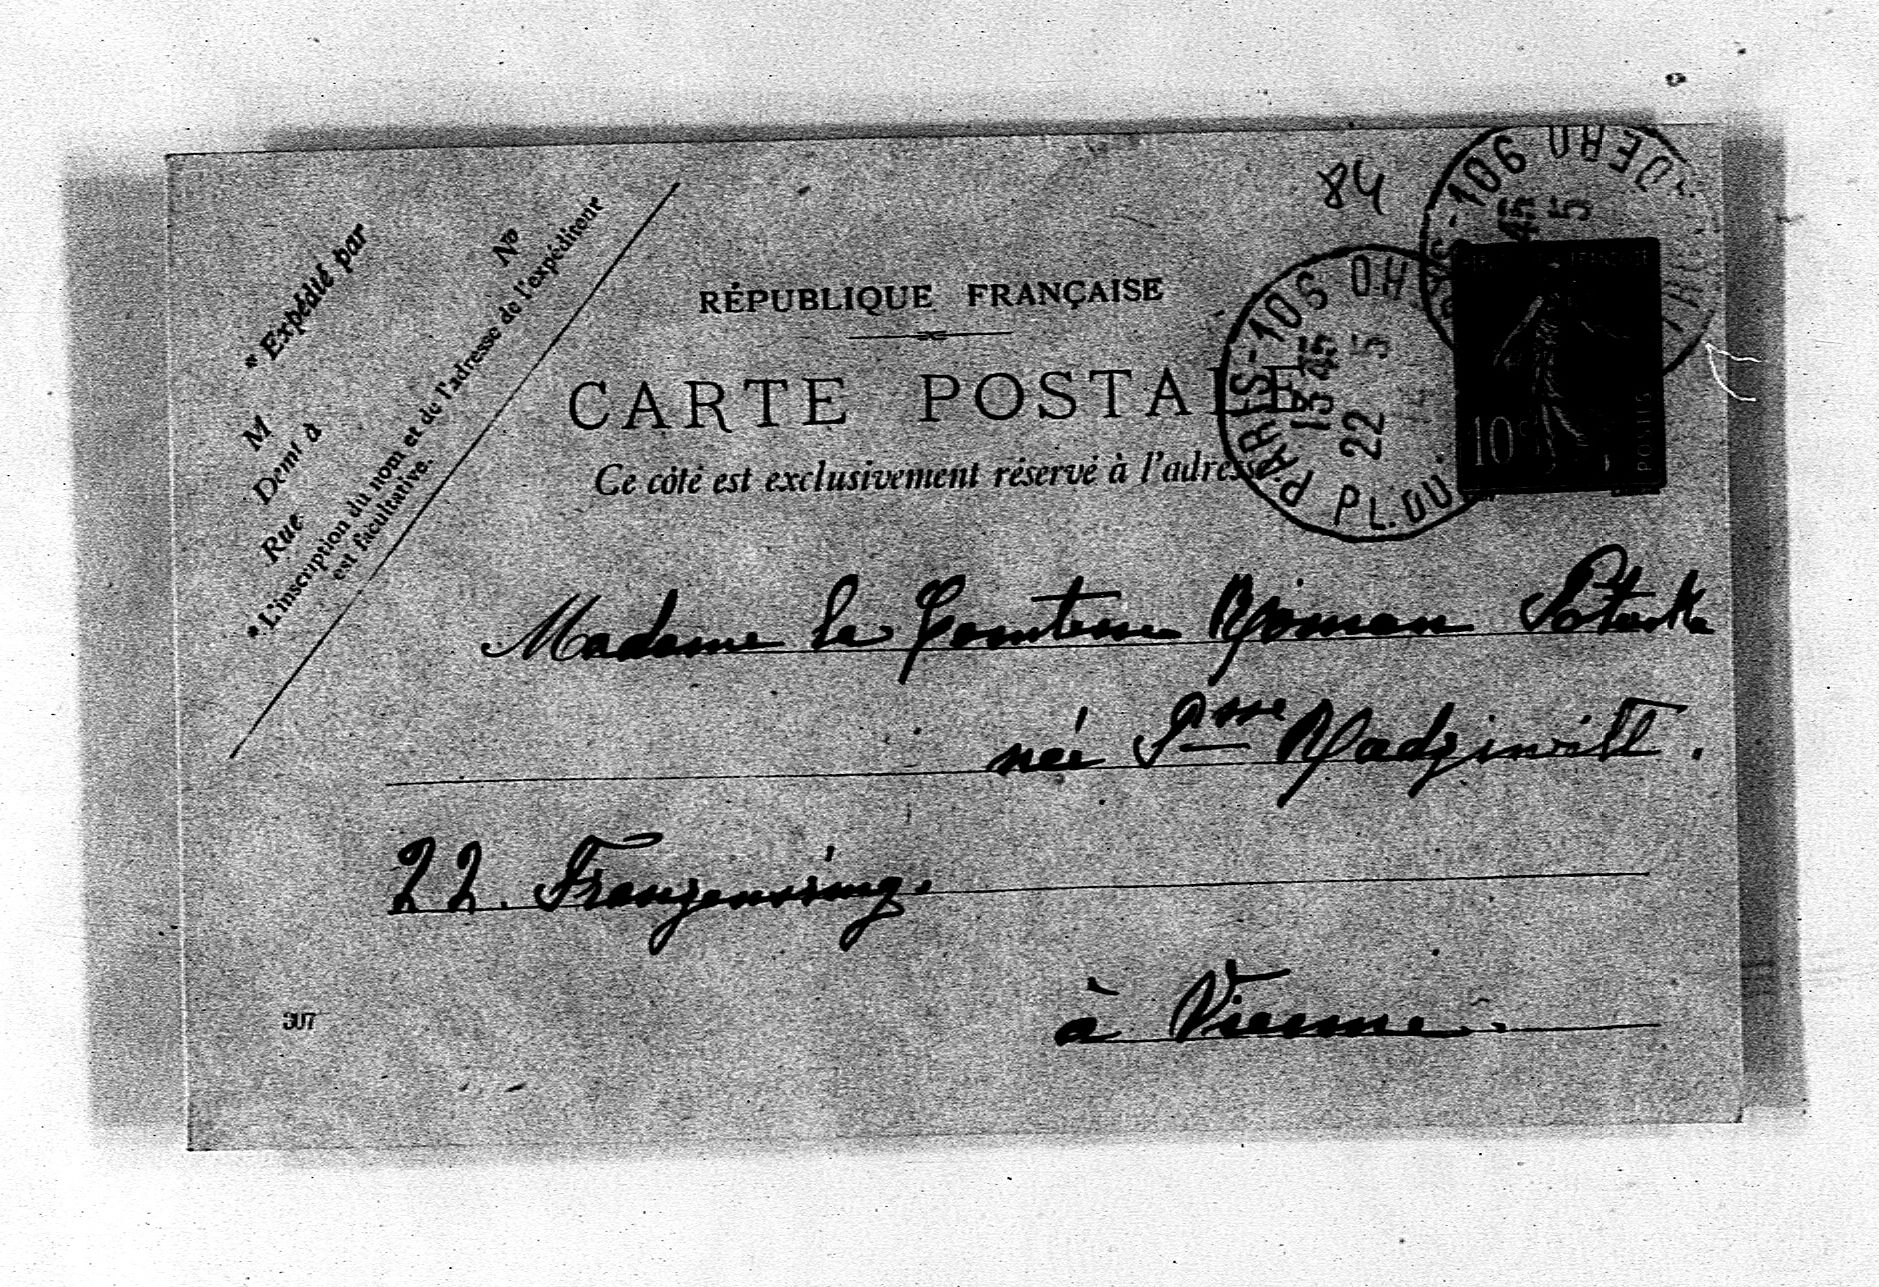 84
* Expédié par
M
Demt à
Rue
No
* L'inscription du nom et de l'adresse de l'expéditeur
est facultative.
RÉPUBLIQUE FRANÇAISE
CARTE POSTALE
Ce côté est exclusivement réservé à l'adresse
PARIS-106
15 45
22 5
PL. DU TROCADERO
10
POSTES
Madame la Comtesse Roman Potocka
née Psse Radziwill.
22. Franzensring.
à Vienne.
307